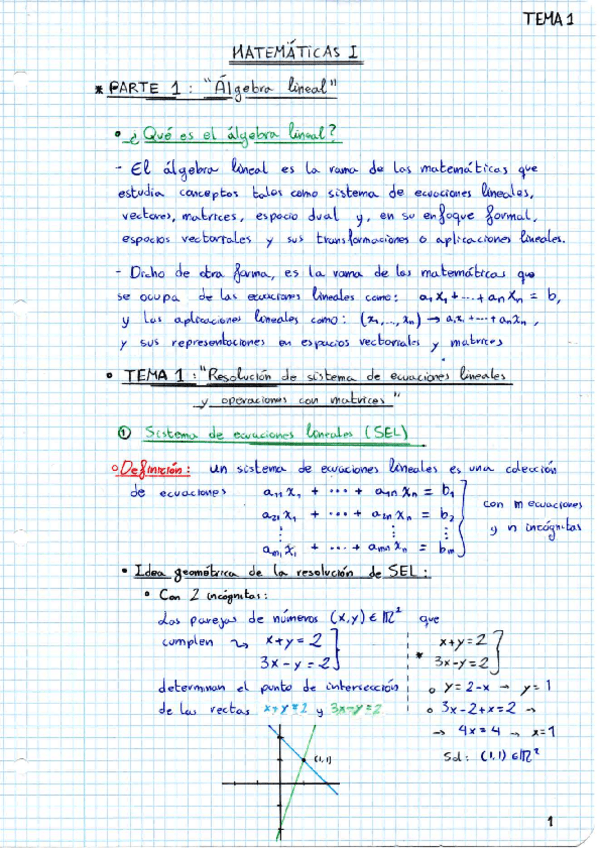 TEMA 1
MATEMÁTICAS I
* PARTE 1: "Álgebra lineal"
• ¿Qué es el álgebra lineal?
- El álgebra lineal es la rama de las matemáticas que
estudia conceptos tales como sistema de ecuaciones lineales,
vectores, matrices, espacio dual y, en su enfoque formal,
espacios vectoriales y sus transformaciones o aplicaciones lineales.
- Dicho de otra forma, es la rama de las matemáticas que
se ocupa de las ecuaciones lineales como: a₁x₁ + ... + aₙxₙ = b,
y las aplicaciones lineales como: (x₁, ..., xₙ) → a₁x₁ + ... + aₙxₙ,
y sus representaciones en espacios vectoriales y matrices
• TEMA 1: "Resolución de sistema de ecuaciones lineales
y operaciones con matrices"
① Sistema de ecuaciones lineales (SEL)
○ Definición: un sistema de ecuaciones lineales es una colección
de ecuaciones a₁₁x₁ + ... + a₁ₙxₙ = b₁
a₂₁x₁ + ... + a₂ₙxₙ = b₂
⋮ ⋮ ⋮
aₘ₁x₁ + ... + aₘₙxₙ = bₘ
con m ecuaciones
y n incógnitas
• Idea geométrica de la resolución de SEL:
• Con 2 incógnitas:
Las parejas de números (x,y) ∈ ℝ² que
cumplen ⤳ x+y = 2
3x - y = 2}
determinan el punto de intersección
de las rectas x+y=2 y 3x-y=2
* x+y = 2
3x-y = 2}
o y = 2-x → y = 1
o 3x-2+x = 2 →
→ 4x = 4 → x=1
Sol: (1,1) ∈ ℝ²
(1,1)
1